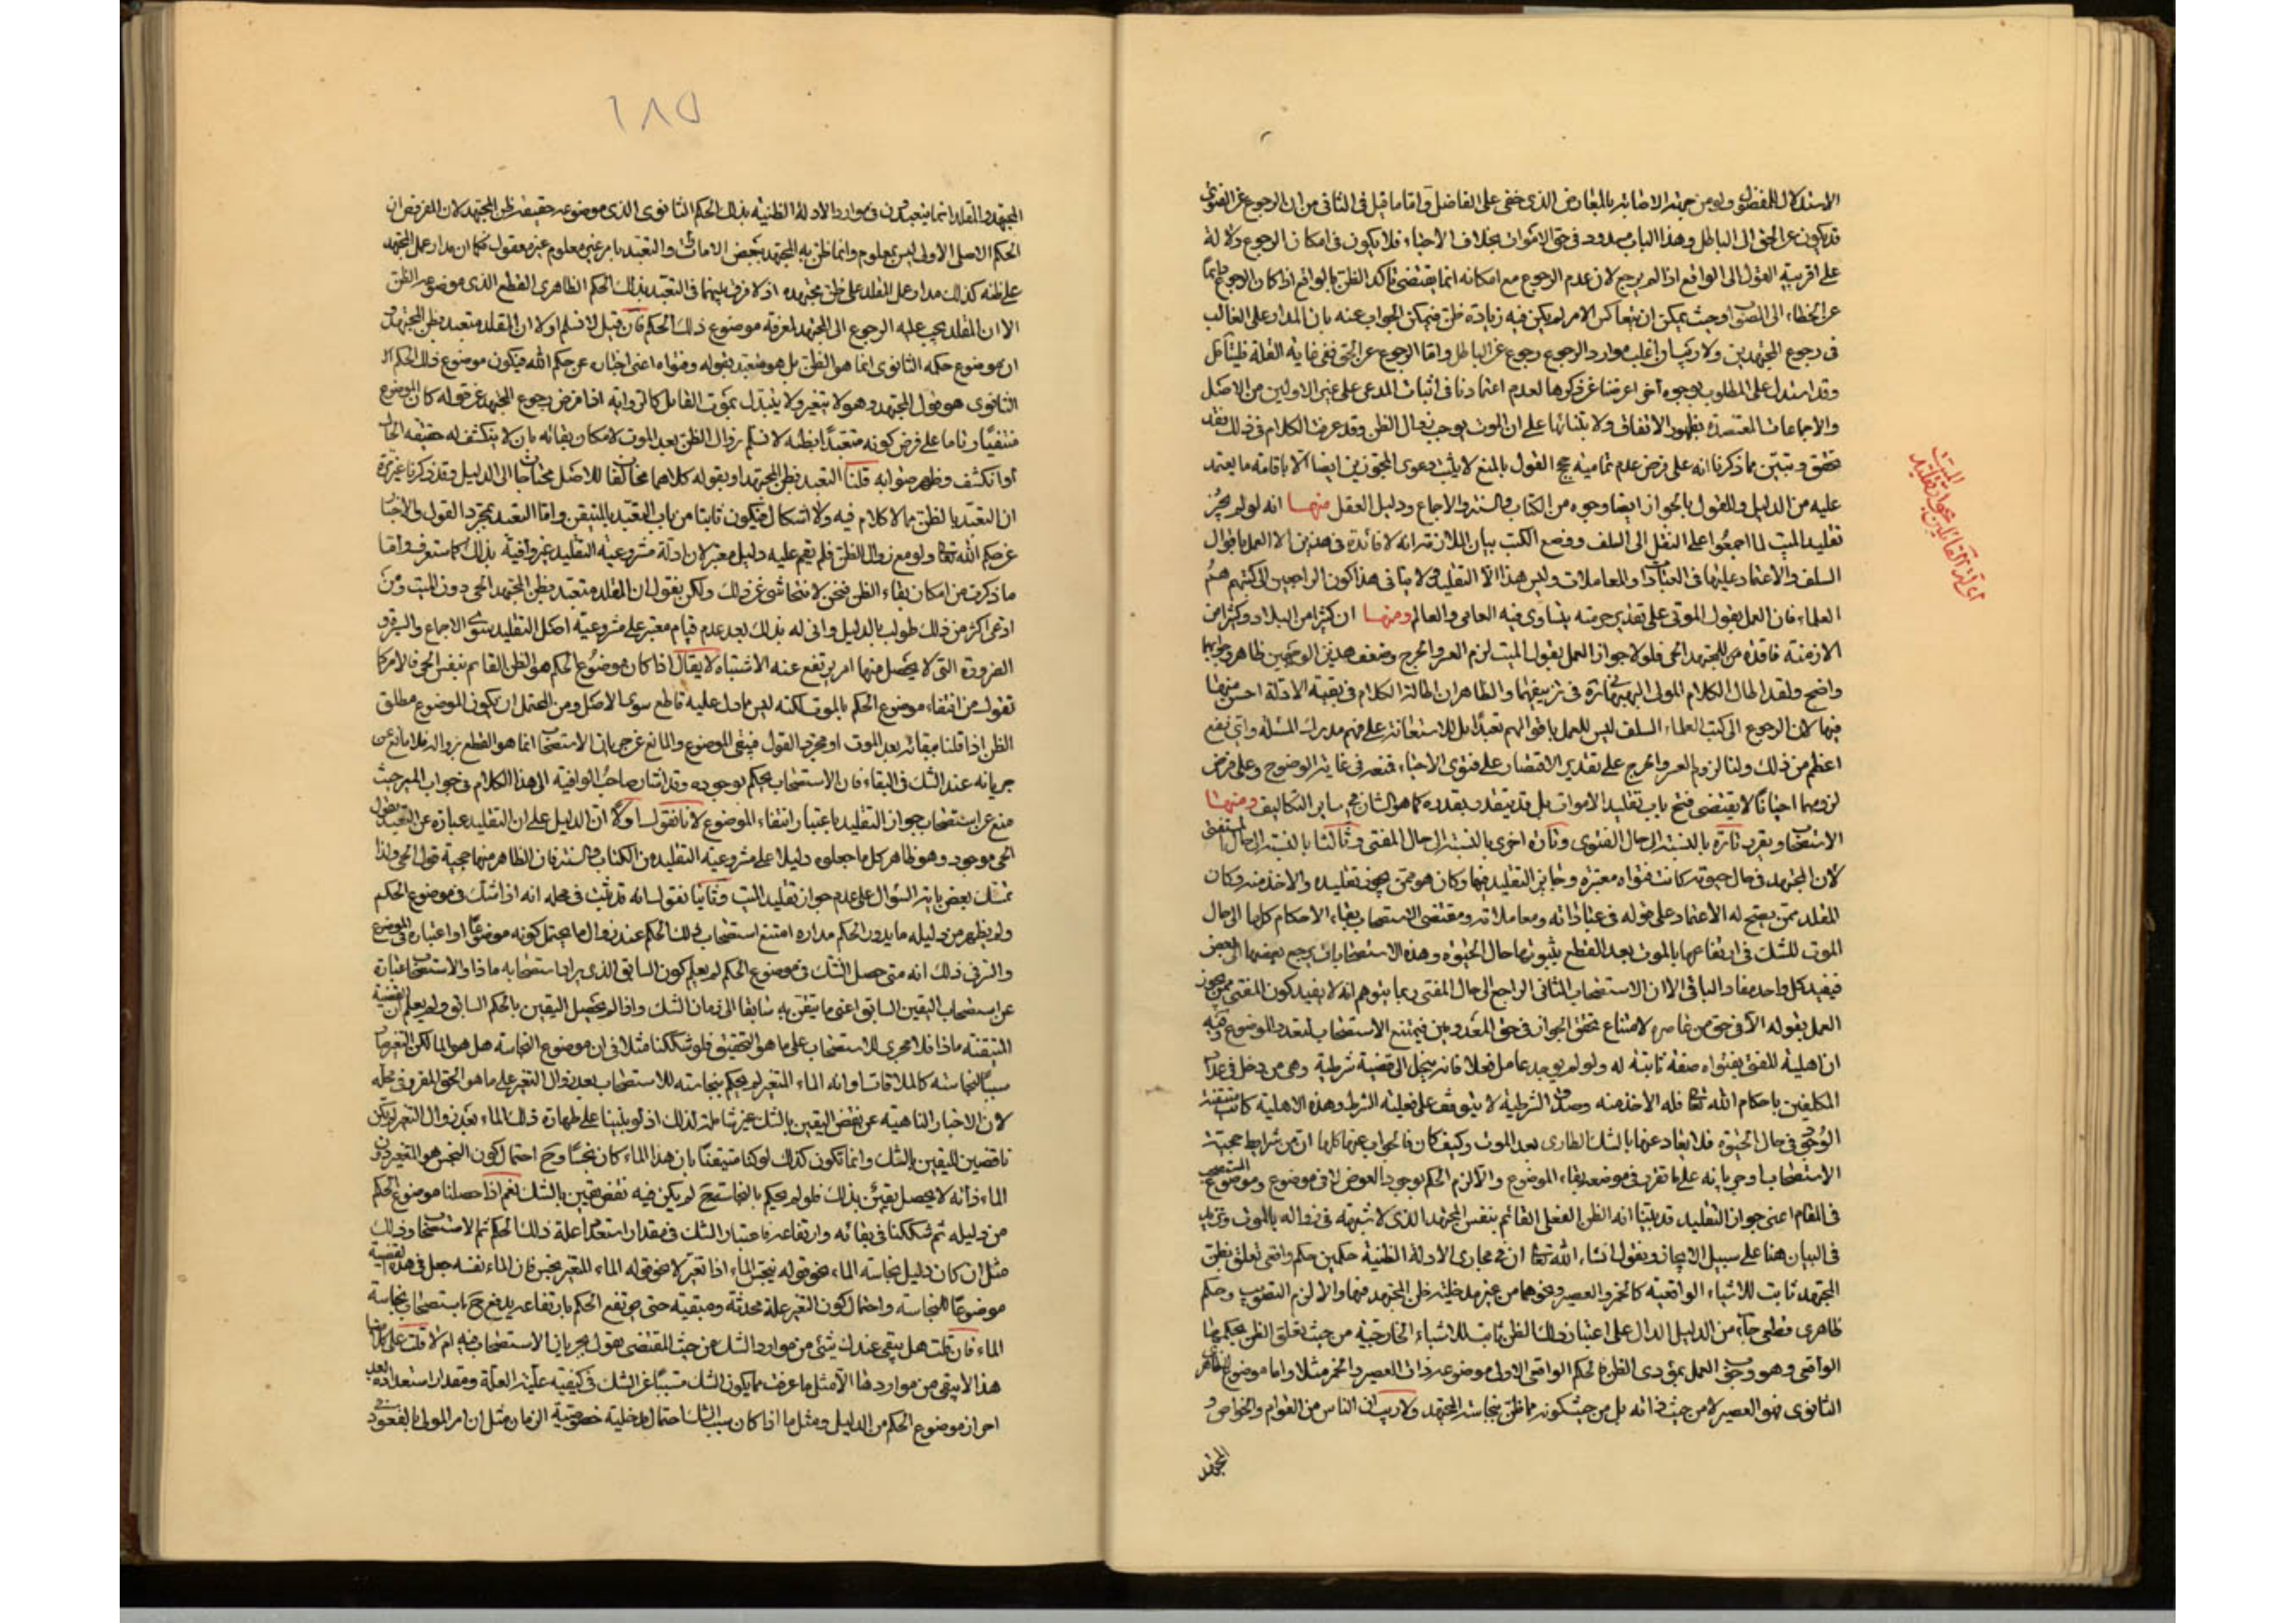 الاستدلال للمفضول ولو من جهة الاضابة بالمعارض الذى خفى على الفاضل واما ما قيل فى الثانى من ان الرجوع عن الفتوى
قد يكون عن الحق الى الباطل وهذا الباب مسدود فى حق الاموات بخلاف الاحياء فلا يكون فى امكان الرجوع دلالة
على اقربية القول الى الواقع اذا لم يرجع لان عدم الرجوع مع امكانه انما يقتضى تأكد الظن بالواقع اذا كان الرجوع دائما
عن الخطاء الى الصواب وحيث يمكن ان يتعاكس الامر لم يكن فيه زيادة ظن فيمكن الجواب عنه بان المدار على الغالب
فى رجوع المجتهدين ولا ريب ان اغلب موارد الرجوع رجوع عن الباطل واما الرجوع عن الحق ففى غاية القلة فليتأمل
وقد استدل على المطلوب بوجوه اخر اعرضنا عن ذكرها لعدم اعتمادنا فى اثبات المدعى على غير الاولين من الاصل
والاجماعات المعتضدة بظهور الاتفاق ولا بتنائها على ان الموت يوجب زوال الظن وقد عرفت الكلام فى ذلك فقد
تحقق وتبين مما ذكرنا انه على فرض عدم تمامية حجج القول بالمنع لا يثبت دعوى المجوزين ايضا الا باقامة ما يعتمد
عليه من الدليل وللقول بالجواز ايضا وجوه من الكتاب والسنة والاجماع ودليل العقل منها انه لو لم يجز
تقليد الميت لما اجمعوا على النقل الى السلف ووضع الكتب بيان الملازمة انه لا فائدة فى هذين الا العمل باقوال
السلف والاعتماد عليها فى العبادات والمعاملات وليس هذا الا التقليد ولا ينافى هذا كون الراجعين الى كتبهم هم
العلماء فان العمل بقول الموتى على تقدير حرمته يتساوى فيه العامى والعالم ومنها ان كثيرا من البلاد وكثيرا من
الازمنة فاقدة من المجتهد الحى فلولا جواز العمل بقول الميت لزم العسر والحرج وضعف هذين الوجهين ظاهر وجوابهما
واضح ولقد اطال الكلام المولى البهبهانى ره فى تزييفهما والظاهر ان اطالة الكلام فى بقية الادلة احسن منها
فيها لان الرجوع الى كتب العلماء السلف ليس للعمل باقوالهم تعبدا بل للاستعانة على فهم مدرك المسئلة واى نفع
اعظم من ذلك ولنا لزوم العسر والحرج على تقدير الاقتصار على فتوى الاحياء فمنعه فى غاية الوضوح وعلى فرض
لزومهما احيانا لا يقتضى فتح باب تقليد الاموات بل قد يتقدر بقدره كما هو الشان فى ساير التكاليف ومنها
الاستصحاب ويقرر تارة بالنسبة الى حال الفتوى وتارة اخرى بالنسبة الى حال المفتى وثالثا بالنسبة الى حال المستفتى
لان المجتهد فى حال حيوته كانت فتواه معتبرة وجايز التقليد فيها وكان هو ممن يجوز تقليده والاخذ منه وكان
المقلد ممن يصح له الاعتماد على قوله فى عباداته ومعاملاته ومقتضى الاستصحاب بقاء الاحكام كلها الى حال
الموت للشك فى ارتفاعها بالموت بعد القطع بثبوتها حال الحيوة وهذه الاستصحابات يرجع بعضها الى بعض
فيفيد كل واحد مفاد الباقى الا ان الاستصحاب الثانى الراجع الى حال المفتى ربما يتوهم انه لا يفيد كون المفتى ممن يجوز
العمل بقوله الا فى حق من عاصره لامتناع تحقق الجواز فى حق المعدومين فيمتنع الاستصحاب لتعدد الموضوع وفيه
ان اهلية المفتى بفتواه صفة ثابتة له ولو لم يوجد عامل فعلا فانه ينحل الى قضية شرطية وهى من دخل فى عداد
المكلفين باحكام الله تعالى فله الاخذ منه وصدق الشرطية لا يتوقف على فعلية الشرط وهذه الاهلية كانت متيقنة
الوجود فى حال الحيوة فلا يعاد عنها بالشك الطارى بعد الموت وكيف كان فالجواب عنها كلها ان من شرايط حجية
الاستصحاب وجريانه على ما تقرر فى موضعه بقاء الموضوع والا لزم الحكم بوجود العرض لا فى موضوع وموضوع المستصحب
فى المقام اعنى جواز التقليد قد بينا انه الظن الفعلى القائم بنفس المجتهد الذى لا شبهة فى زواله بالموت ونزيد
فى البيان هنا على سبيل الايجاز ونقول انشاء الله تعالى ان فى مجارى الادلة الظنية حكمين حكم واقعى تعلق بظن
المجتهد ثابت للاشياء الواقعية كالخمر والعصير ونحوهما من غير مدخلية ظن المجتهد فيها والا لزم التصويب وحكم
ظاهرى قطعى جاء من الدليل الدال على اعتبار ذلك الظن ثابت للاشياء الخارجية من حيث تعلق الظن بحكمها
الواقعى وهو وجوب العمل بمؤدى الظن فالحكم الواقعى الاولى موضوعه ذات العصير والخمر مثلا واما موضوع الظاهر
الثانوى فهو العصير لا من حيث ذاته بل من حيث كونه مما ظن بنجاسته المجتهد ولا ريب ان الناس من العوام والخواص و
المجتهد
ادلة القائلين بجواز تقليد
الميت
١٨٥
المجتهد والمقلد انما يتعبدون فى موارد الادلة الظنية بذلك الحكم الثانوى الذى موضوعه حقيقة ظن المجتهد لان المفروض ان
الحكم الاصلى الاولى ليس بمعلوم وانما ظن به المجتهد ببعض الامارات والتعبد بامر غير معلوم غير معقول فكما ان مدار عمل المجتهد
على ظنه كذلك مدار عمل المقلد على ظن مجتهده اذ لا فرق بينهما فى التعبد بذلك الحكم الظاهرى القطعى الذى موضوعه الظن
الا ان المقلد يجب عليه الرجوع الى المجتهد لمعرفة موضوع ذلك الحكم فان قيل لا نسلم اولا ان المقلد متعبد بظن المجتهد و
ان موضوع حكمه الثانوى انما هو الظن بل هو متعبد بقوله وفتواه اعنى اخباره عن حكم الله فيكون موضوع ذلك الحكم
الثانوى هو قول المجتهد وهو لا يتغير ولا يتبدل بموت القائل كالرواية اذا فرض رجوع المجتهد عن قوله كان الموضوع
منتفيا وثانيا على فرض كونه متعبدا بظنه لا نسلم زوال الظن بعد الموت لامكان بقائه بان لا ينكشف له حقيقة الحال
او انكشف وظهر صوابه قلنا التعبد بظن المجتهد او بقوله كلاهما مخالفا للاصل محتاجا الى الدليل وقد ذكرنا غير مرة
ان التعبد بالظن مما لا كلام فيه ولا اشكال فيكون ثابتا من باب التعبد بالمتيقن واما التعبد بمجرد القول والاخبار
عن حكم الله تعالى ولو مع زوال الظن فلم يقم عليه دليل معتبر لان ادلة مشروعية التقليد غير وافية بذلك كما ستعرف واما
ما ذكرت من امكان بقاء الظن فنحن لا نتحاشى عن ذلك ولكن نقول ان المقلد متعبد بظن المجتهد الحى دون الميت ومن
ادعى اكثر من ذلك طولب بالدليل وانى له بذلك بعد عدم قيام معتبر على مشروعية اصل التقليد سوى الاجماع والسيرة و
الضرورة التى لا يحصل منها امر يرتفع عنه الاشتباه لا يقال اذا كان موضوع الحكم هو الظن القائم بنفس الحى فالامر كما
تقول من انتفاء موضوع الحكم بالموت لكنه ليس مما دل عليه قاطع سوى الاصل ومن المحتمل ان يكون الموضوع مطلق
الظن اذا قلنا ببقائه بعد الموت او مجرد القول فيبقى الموضوع والمانع عن جريان الاستصحاب انما هو القطع بزواله فلا مانع عن
جريانه عند الشك فى البقاء فان الاستصحاب يحكم بوجوده وقد اشار صاحب الوافية الى هذا الكلام فى جواب المير حيث
منع عن استصحاب جواز التقليد باعتبار انتفاء الموضوع لانا نقول اولا ان الدليل على ان التقليد عبارة عن التعبد بقول
الحى موجود وهو ظاهر كل ما جعلوه دليلا على مشروعية التقليد من الكتاب والسنة فان الظاهر منها حجية قول الحى ولذا
تمسك بعض باية السؤال على عدم جواز تقليد الميت وثانيا نقول انه قد ثبت فى محله انه اذا شك فى موضوع الحكم
ولم يظهر من دليله ما يدور الحكم مداره امتنع استصحاب ذلك الحكم عند زوال ما يحتمل كونه موضوعا او اعتباره فى الموضوع
والسر فى ذلك انه متى حصل الشك فى موضوع الحكم لم يعلم كون السابق الذى يراد استصحابه ماذا والاستصحاب عبارة
عن استصحاب اليقين السابق اعنى ما تيقن به سابقا الى زمان الشك واذا لم يحصل اليقين بالحكم السابق ولم يعلم ان القضية
المتيقنة ماذا فلا مجرى للاستصحاب على ما هو التحقيق فلو شككنا مثلا فى ان موضوع النجاسة هل هو الماء لكن التغير صار
سببا لنجاسته كالملاقات او انه الماء المتغير لم يحكم بنجاسته للاستصحاب بعد زوال التغير على ما هو الحق المقرر فى محله
لان الاخبار الناهية عن نقض اليقين بالشك غير شاملة لذلك اذ لو بنينا على طهارة ذلك الماء بعد زوال التغير لم نكن
ناقضين لليقين بالشك وانما نكون كذلك لو كنا متيقنا بان هذا الماء كان نجسا وح احتمال كون النجس هو المتغير دون
الماء ذاته لا يحصل يقين بذلك فلو لم يحكم بالنجاسة ح لم يكن فيه نقض يقين بالشك نعم اذا حصلنا موضوع الحكم
من دليله ثم شككنا فى بقائه وارتفاعه باعتبار الشك فى مقدار استعداد علة ذلك الحكم تم الاستصحاب وذلك
مثل ان كان دليل نجاسة الماء نحو قوله ينجس الماء اذا تغير لا نحو قوله الماء المتغير نجس فان الماء نفسه جعل فى هذه القضية
موضوعا للنجاسة واحتمال كون التغير علة محدثة ومبقية حتى يرتفع الحكم بارتفاعه يدفع ح باستصحاب نجاسة
الماء فان قلت هل يبقى عندك شئ من موارد الشك من حيث المقتضى تقول بجريان الاستصحاب فيه ام لا قلت على
هذا لا يبقى من مواردها الا مثل ما عرفت مما يكون الشك مسببا عن الشك فى كيفية علية العلة ومقدار استعدادها بعد
احراز موضوع الحكم من الدليل ومثل ما اذا كان سبب الشك احتمال مدخلية خصوصية الزمان مثل ان امر المولى بالقعود